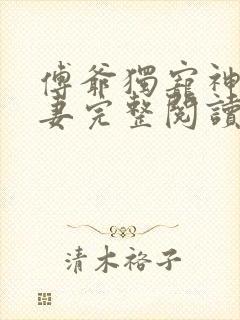 傅爺獨寵神
妻完整閱讀
清木裕子